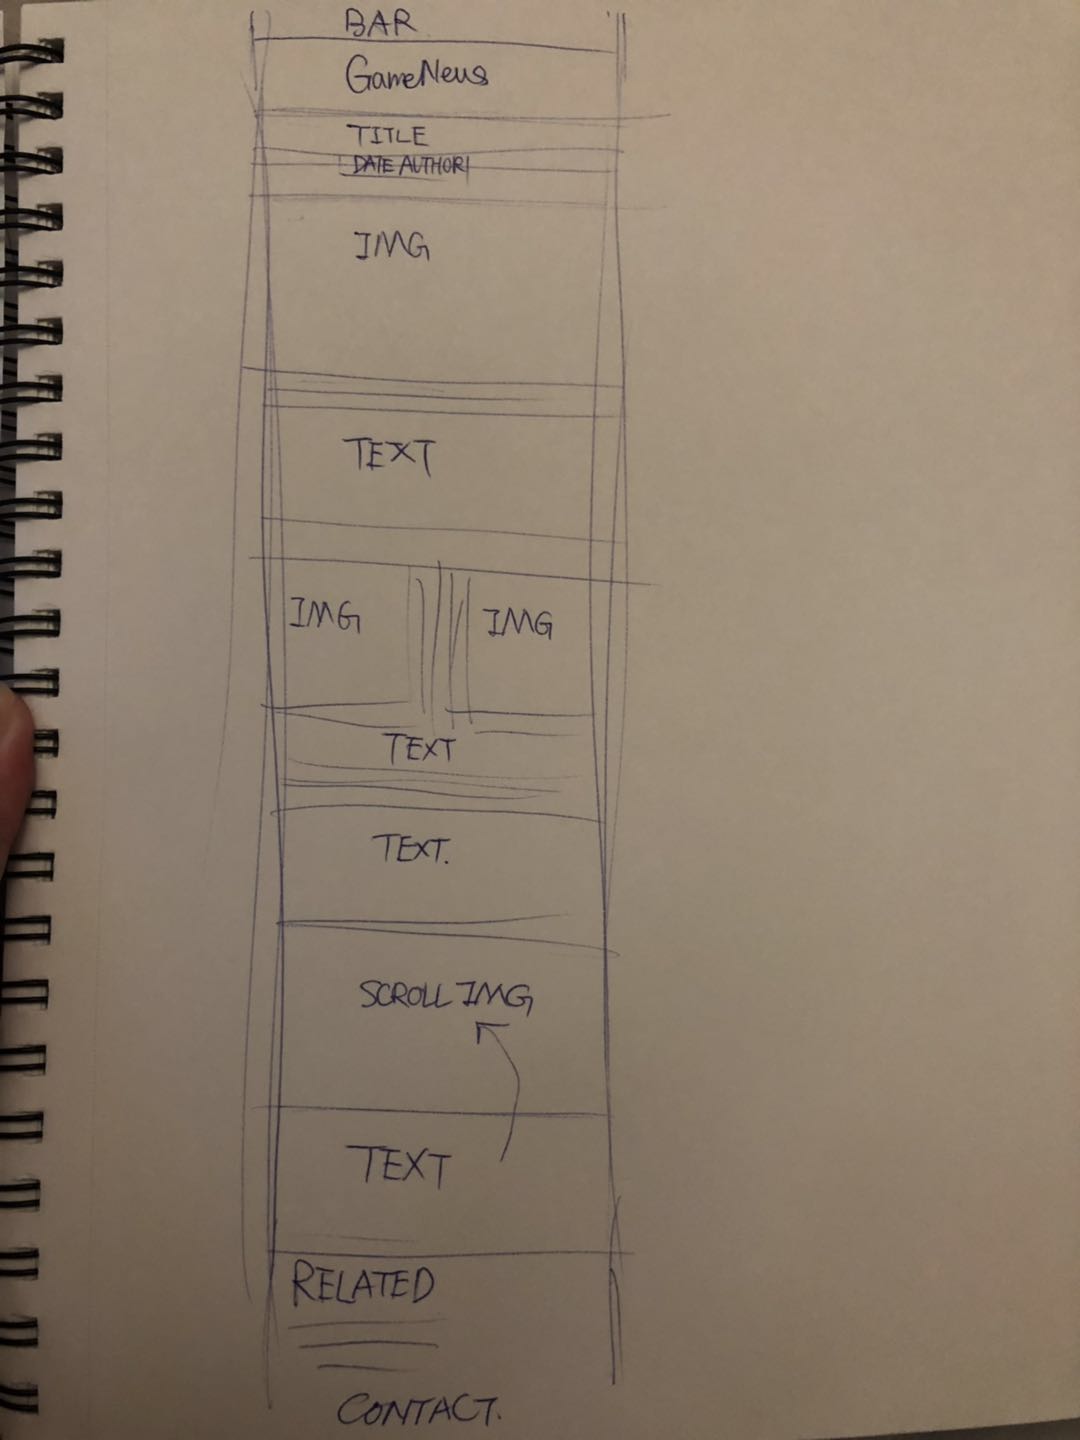 BAR
GameNews
TITLE
DATE AUTHOR
IMG
TEXT
IMG IMG
TEXT
TEXT.
SCROLL IMG
TEXT
RELATED
CONTACT.